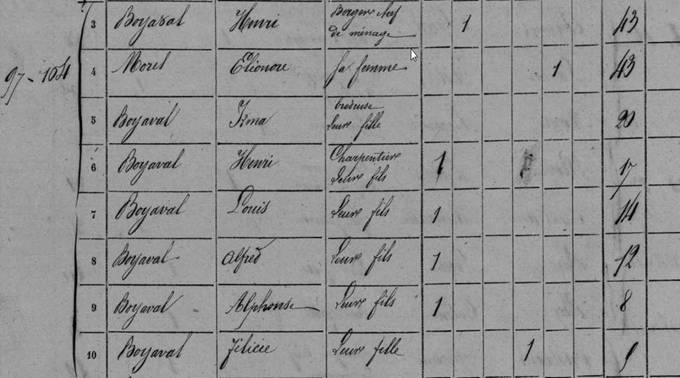 3 Boyaval Henri Berger chef 1 43
de ménage
97-104
4 Morel Eléonore Sa femme 1 43
brodeuse
5 Boyaval Irma Leur fille 20
6 Boyaval Henri Charpentier 1 17
Leur fils
7 Boyaval Louis Leur fils 1 14
8 Boyaval Alfred Leur fils 1 12
9 Boyaval Alphonse Leur fils 1 8
10 Boyaval Félicie Leur fille 1